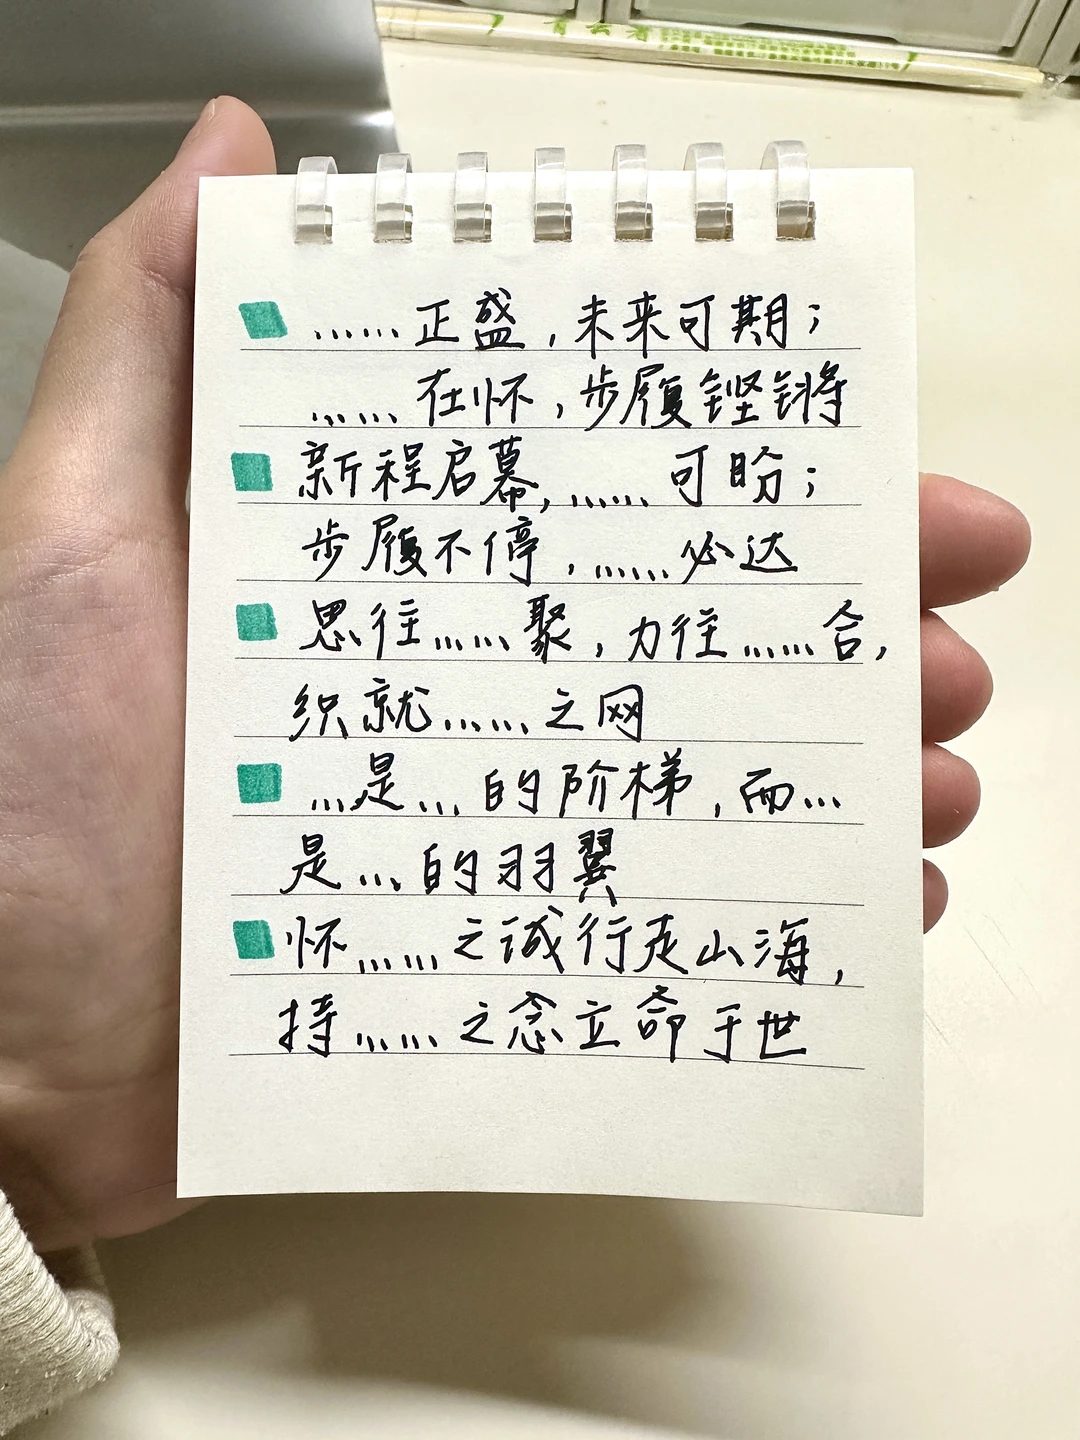 青云者
……正盛，未来可期；
……在怀，步履铿锵
新程启幕，……可盼；
步履不停，……必达
思往……聚，力往……合，
织就……之网
…是…的阶梯，而…
是…的羽翼
怀……之诚行走山海，
持……之念立命于世